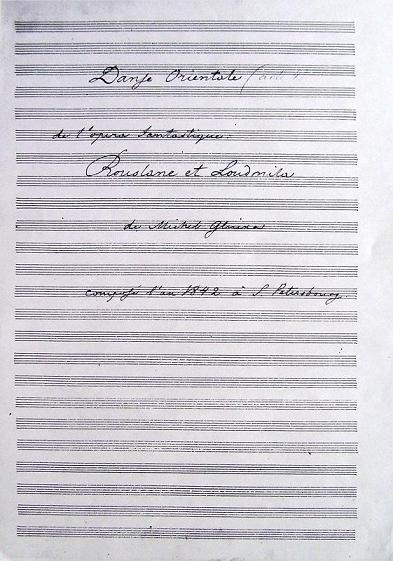 Danse Orientale (acte
de l'opéra fantastique:
Rouslane et Loudmila
de Michel Glinka
composé l'an 1842 à S. Petersbourg.